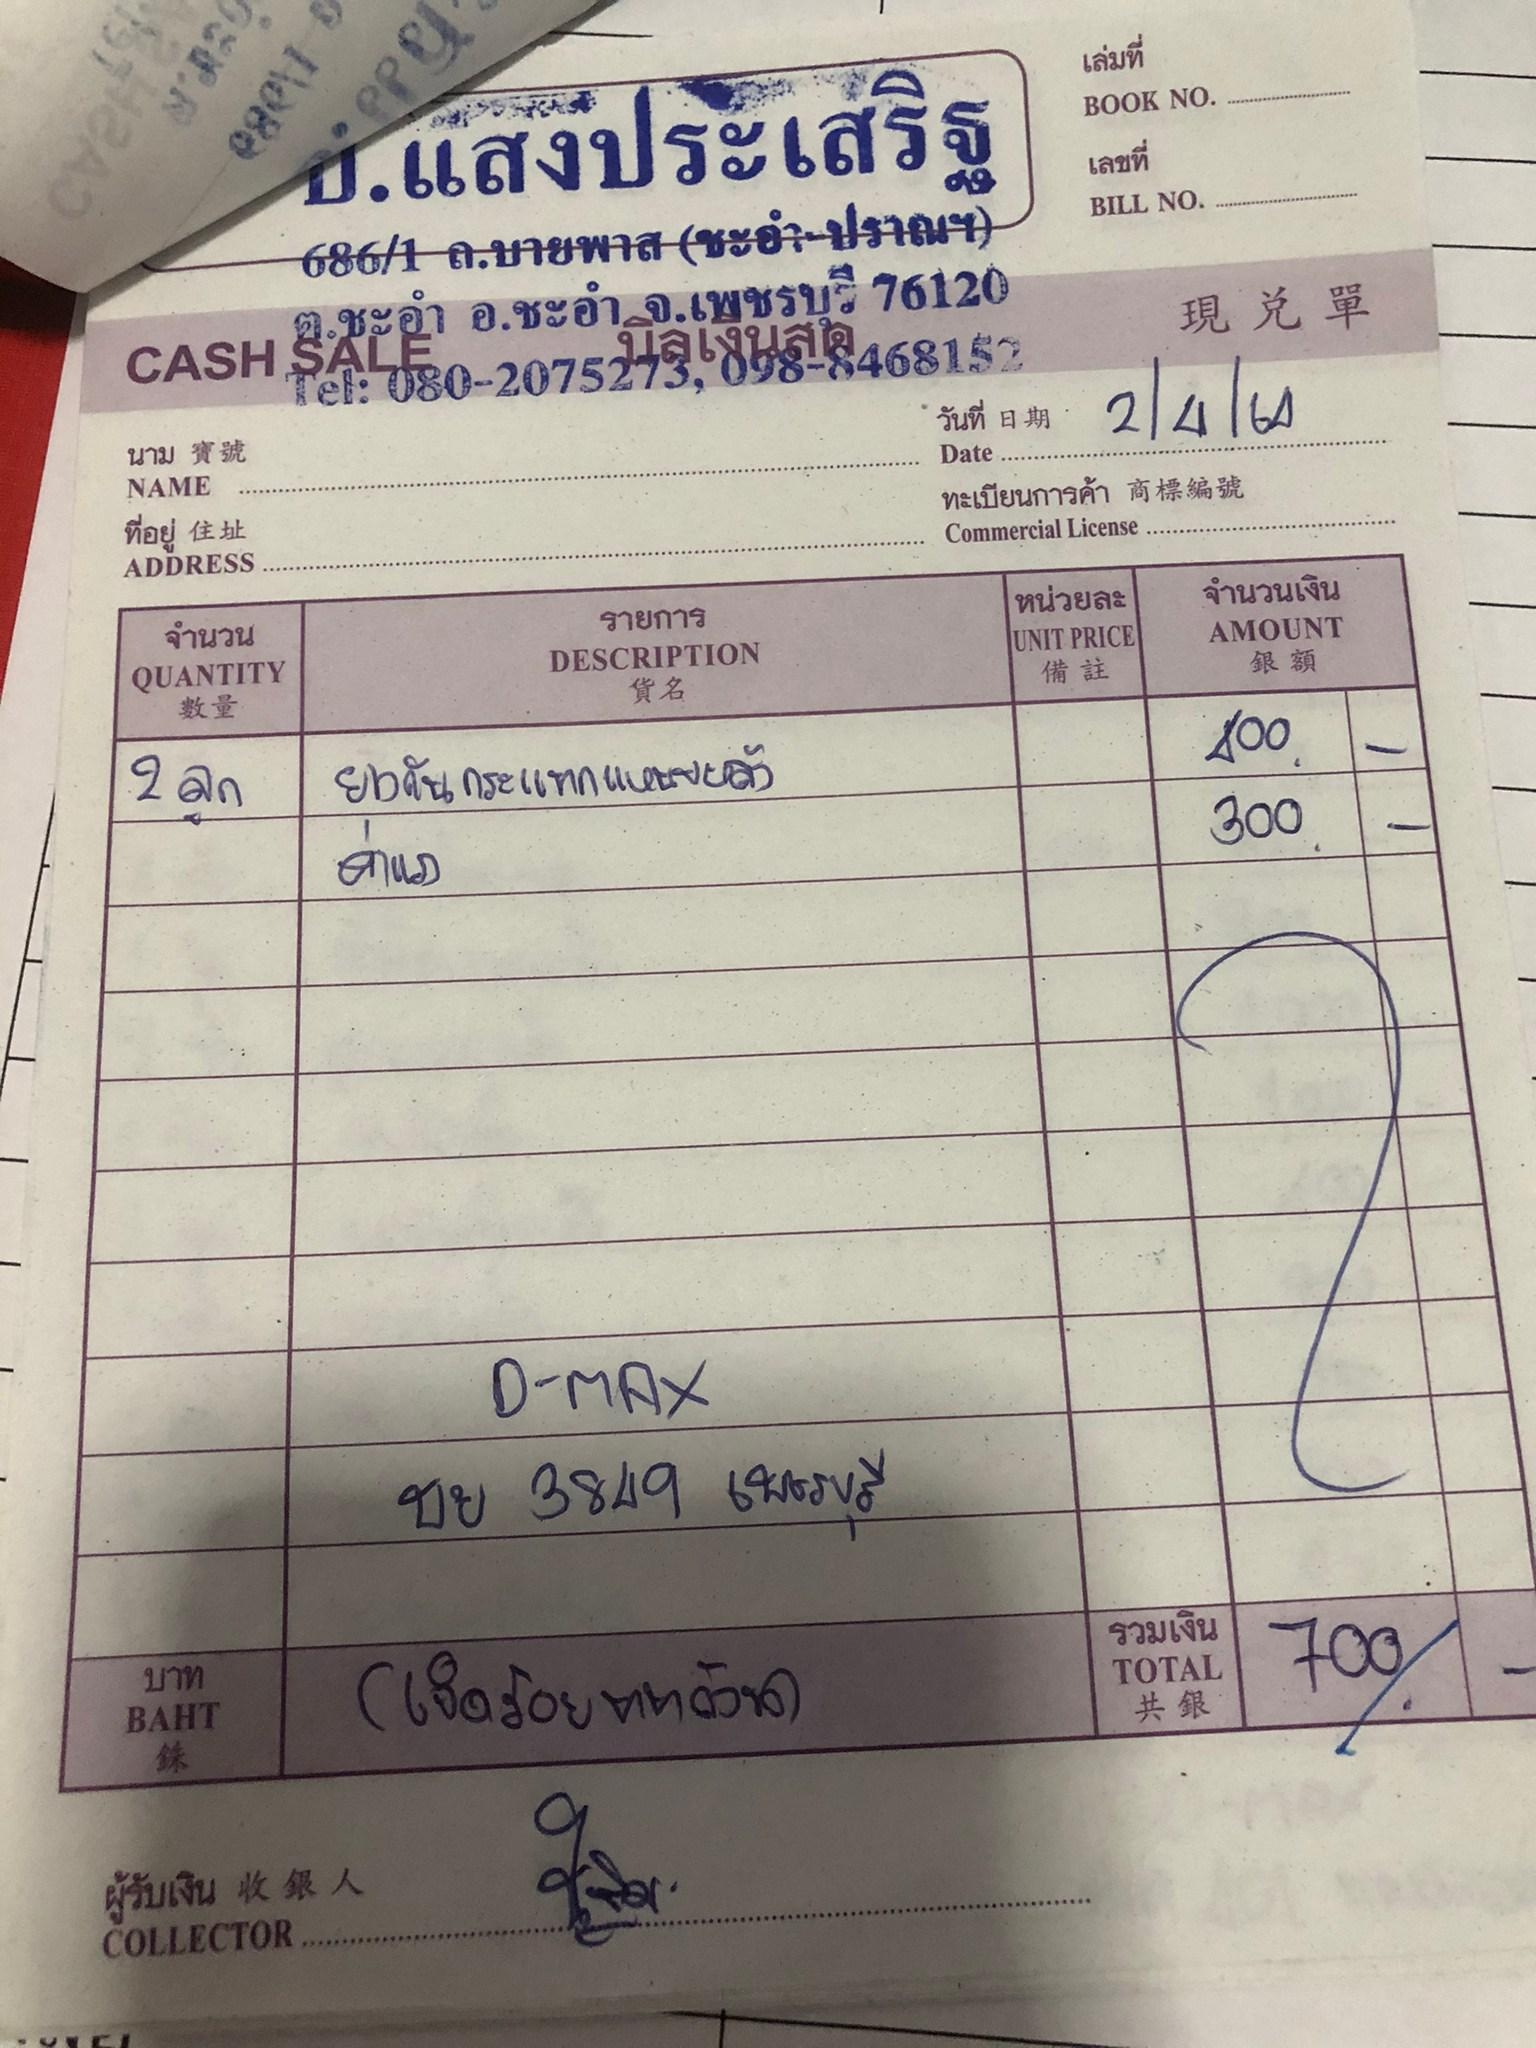 ป.แสงประเสริฐ
686/1 ถ.บายพาส (ชะอำ-ปราณฯ)
ต.ชะอำ อ.ชะอำ จ.เพชรบุรี 76120
Tel: 080-2075273, 098-8468152
เล่มที่
BOOK NO.
เลขที่
BILL NO.
CASH SALE บิลเงินสด 現兑單
วันที่ 日期 2/4/64
Date
นาม 寶號
NAME
ทะเบียนการค้า 商標編號
Commercial License
ที่อยู่ 住址
ADDRESS
จำนวน รายการ หน่วยละ จำนวนเงิน
QUANTITY DESCRIPTION UNIT PRICE AMOUNT
數量 貨名 備註 銀額
2 ลูก ยางกันกระแทกแหนบหลัง 400. -
ค่าแรง 300. -
D-MAX
บย 3849 เพชรบุรี
บาท รวมเงิน
BAHT (เจ็ดร้อยบาทถ้วน) TOTAL 700. -
銖 共銀
ผู้รับเงิน 收銀人
COLLECTOR